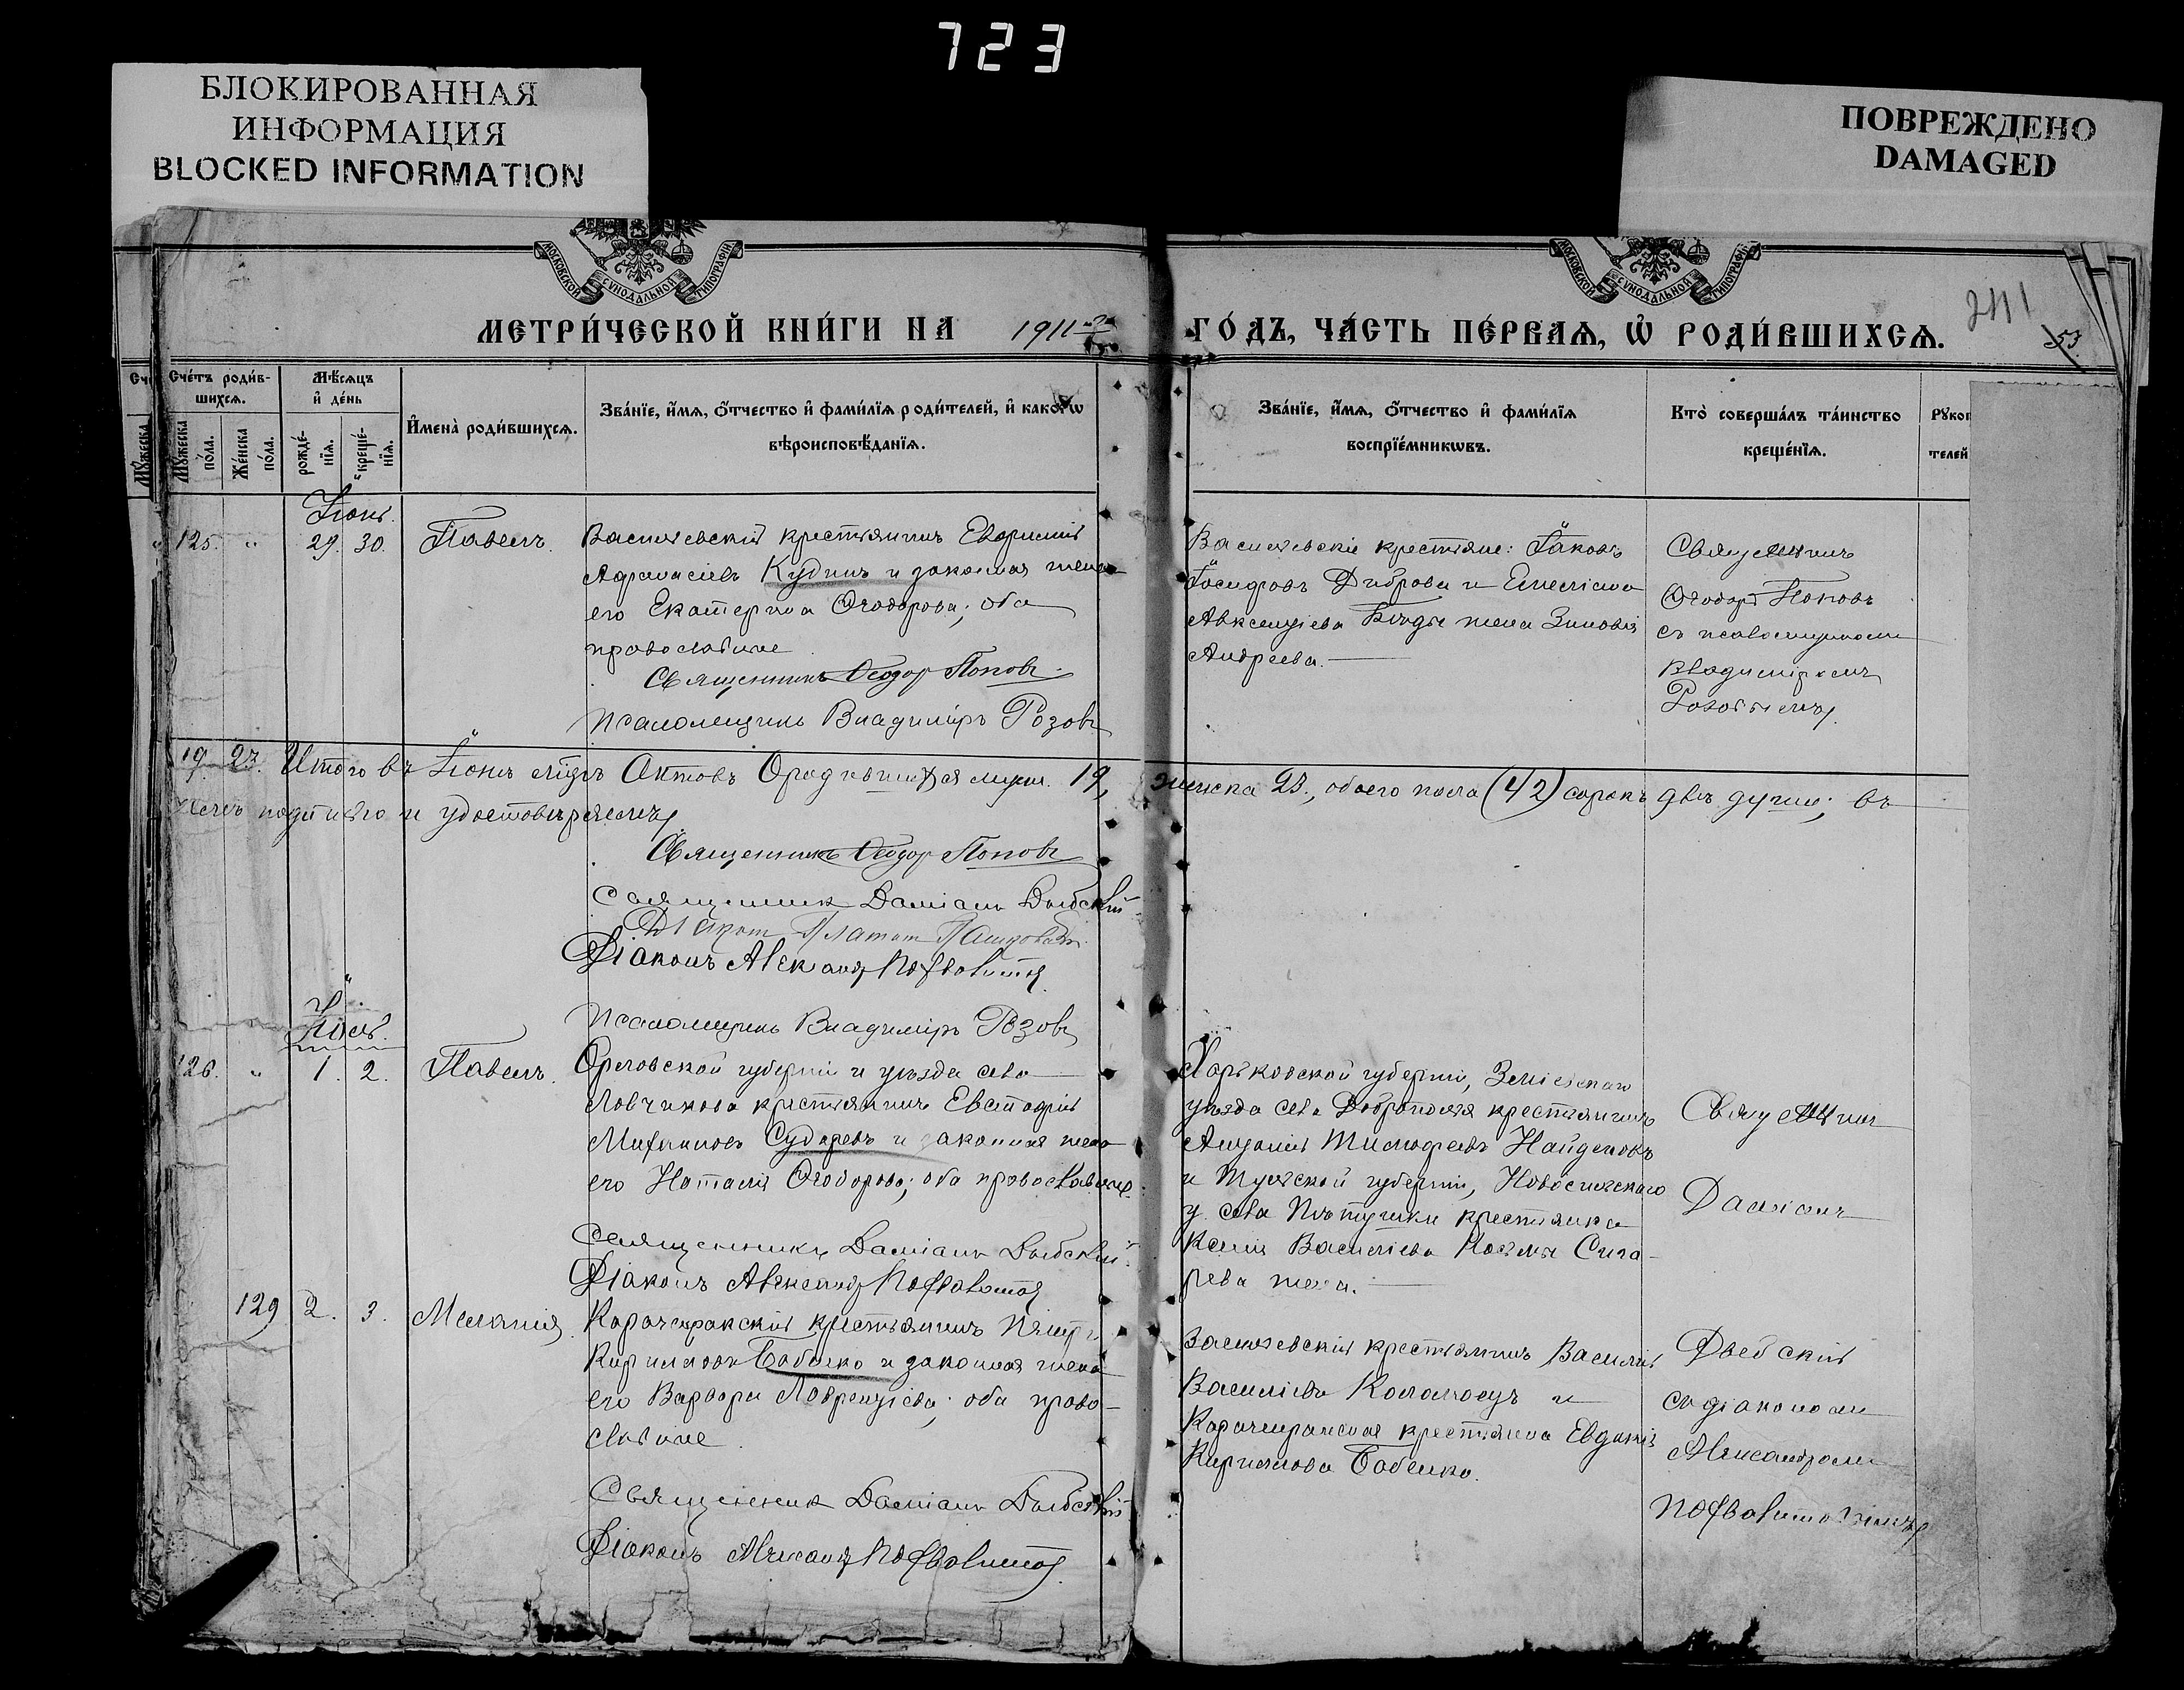 723
БЛОКИРОВАННАЯ
ИНФОРМАЦИЯ
BLOCKED INFORMATION
ПОВРЕЖДЕНО
DAMAGED
МОСКОВСКОЙ СУНОДАЛЬНОЙ ТИПОГРАФІИ
МОСКОВСКОЙ СУНОДАЛЬНОЙ ТИПОГРАФІИ
МЕТРИ́ЧЕСКОЙ КНИ́ГИ НА 1911 ГО́ДЪ, ЧА́СТЬ ПЕ́РВАѦ, Ѡ҆ РОДИ́ВШИХСѦ.
241
53
Сче́тъ роди́в-
шихсѧ.
Мꙋ́жеска
по́ла.
Же́нска
по́ла.
Мѣ́сѧцъ
и҆ де́нь
рожде́-
нїѧ.
креще́-
нїѧ.
И҆мена̀ роди́вшихсѧ.
Зва́нїе, и҆́мѧ, ѻ҆́тчество и҆ фами́лїѧ роди́телей, и҆ како́гѡ
вѣроисповѣ́данїѧ.
Зва́нїе, и҆́мѧ, ѻ҆́тчество и҆ фами́лїѧ
воспрїе́мникѡвъ.
Кто̀ соверша́лъ та́инство
креще́нїѧ.
Рꙋкоп
телей
Іюнь.
125. " 29. 30. Павелъ.
Василевскій крестьянинъ Евфимій
Афанасіевъ Кудинъ и законная жена
его Екатерина Ѳеодорова; оба
православные
Священникъ Ѳеодор Поповъ
Псаломщикъ Владиміръ Розовъ
Василевскіе крестьяне: Іаковъ
Іосифовъ Диброва и
Авксентіева жена Зиновія
Андреева.
Священникъ
Ѳеодоръ Поповъ
съ псаломщикомъ
Владиміромъ
Розовымъ.
19. 23. Итого въ Іюнѣ мѣсяцѣ Актовъ О родившихся мужск. 19, женска 23., обоего пола (42) сорокъ двѣ души; въ
чемъ подписью и удостовѣряемъ
Священникъ Ѳеодор Поповъ
Священникъ Даміанъ Двебскій
Діаконъ Платон
Діаконъ Александр
Псаломщикъ Владиміръ Розовъ
Іюль.
126. " 1. 2. Павелъ.
Орловской губерніи и уѣзда села
Ловчикова крестьянинъ Евстафій
Сударевъ и законная жена
его Наталія Ѳеодорова; оба православные.
Священникъ Даміанъ Двебскій.
Діаконъ Александр
Харьковской губерніи, Зміевскаго
уѣзда села Доброполья крестьянинъ
Антоній Тимофеевъ Найденовъ
и Тульской губерніи, Новосильскаго
у. села Пѣтушки крестьянка
Ксенія Василіева Козьмы Сига-
рева жена.
Священник
Даміанъ
129 2. 3. Меланія.
Карачекракскій крестьянинъ Петръ
Кирилловъ Бабенко и законная жена
его Варвара Лаврентіева; оба право-
славные.
Священник Даміанъ Двебскій
Діаконъ Александр
Василевскій крестьянинъ Василій
Василіевъ Коломоецъ и
Карачекракская крестьянка Евдокія
Кириллова Бабенко.
Двебскій
съ діакономъ
Александромъ